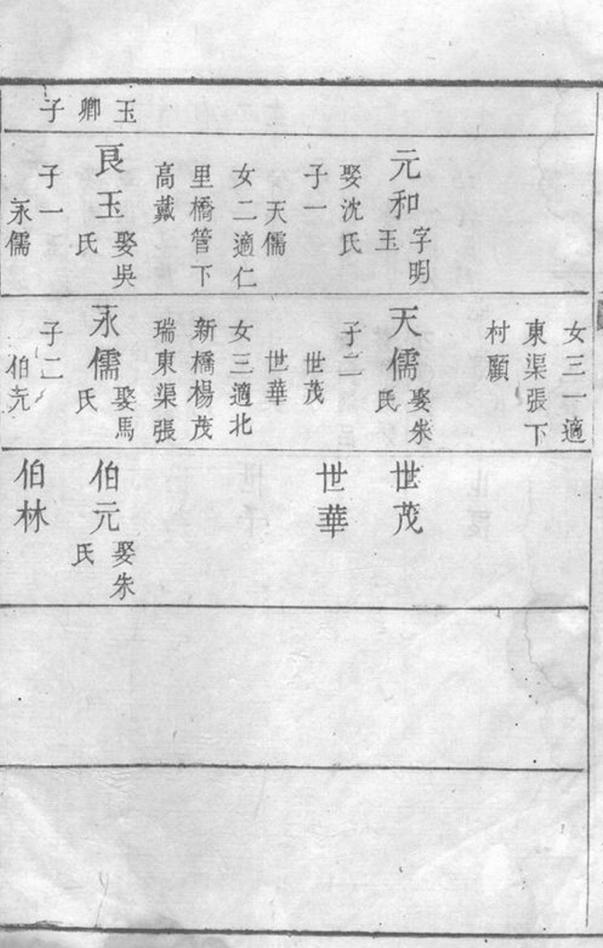 玉卿子
元和
字明
玉
娶沈氏
子一
天儒
女二適仁
里橋管下
高戴
良玉
娶吳
氏
子一
永儒
女三一適
東渠張下
村顧
天儒
娶朱
氏
子二
世茂
世華
女三適北
新橋楊茂
瑞東渠張
永儒
娶馬
氏
子二
伯元
世茂
世華
伯元
娶朱
氏
伯林